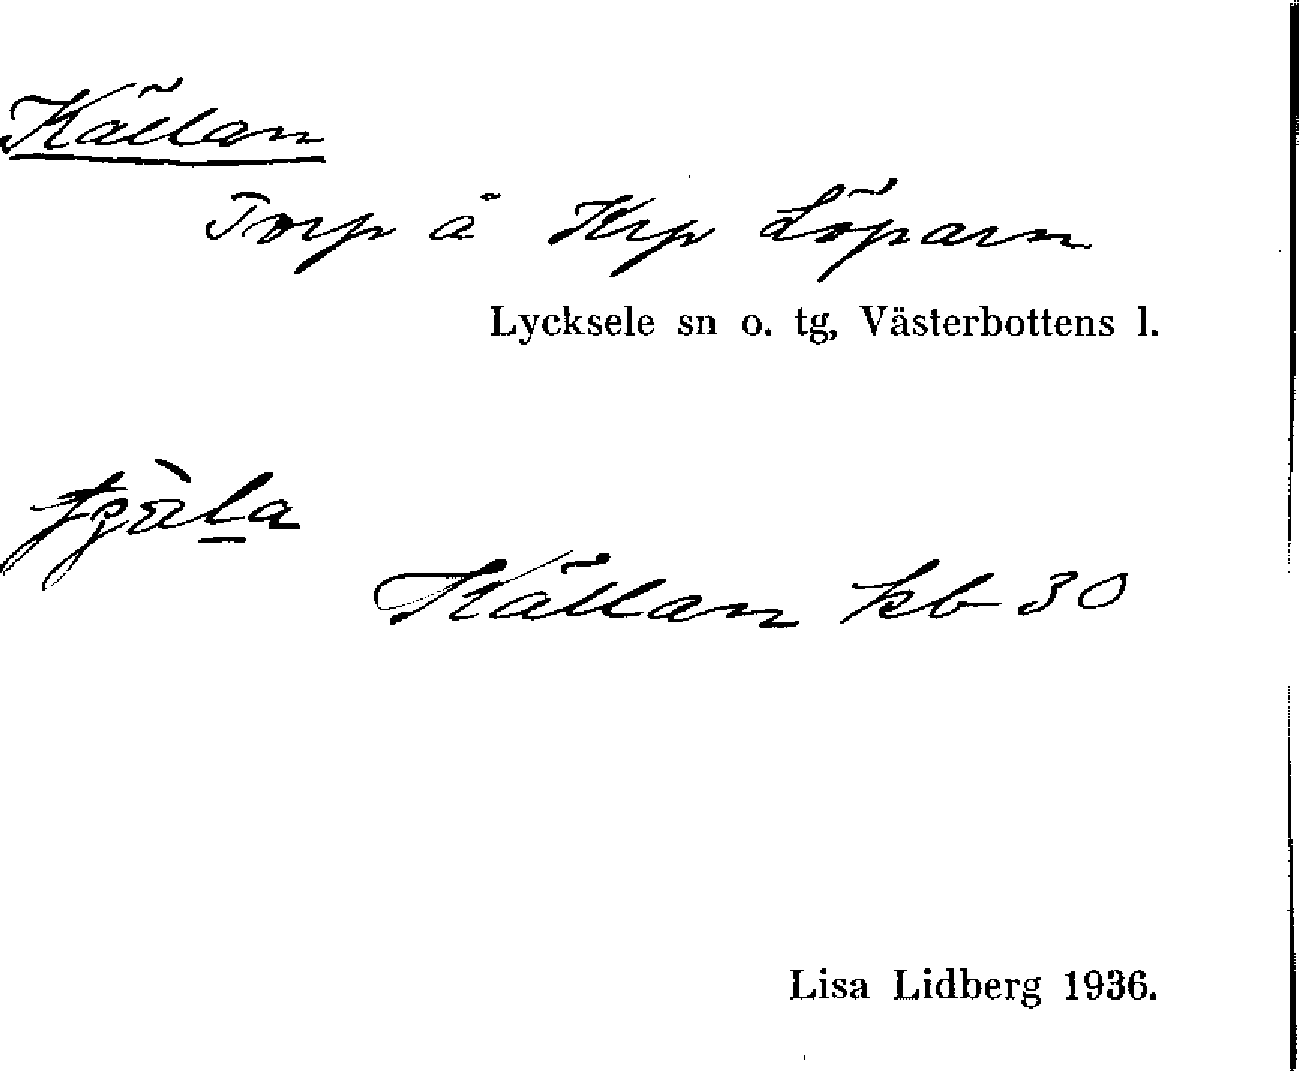 Källan
Torp å Krp Löparn
Lycksele sn o. tg, Västerbottens l.
Källan kb 30
Lisa Lidberg 1936.